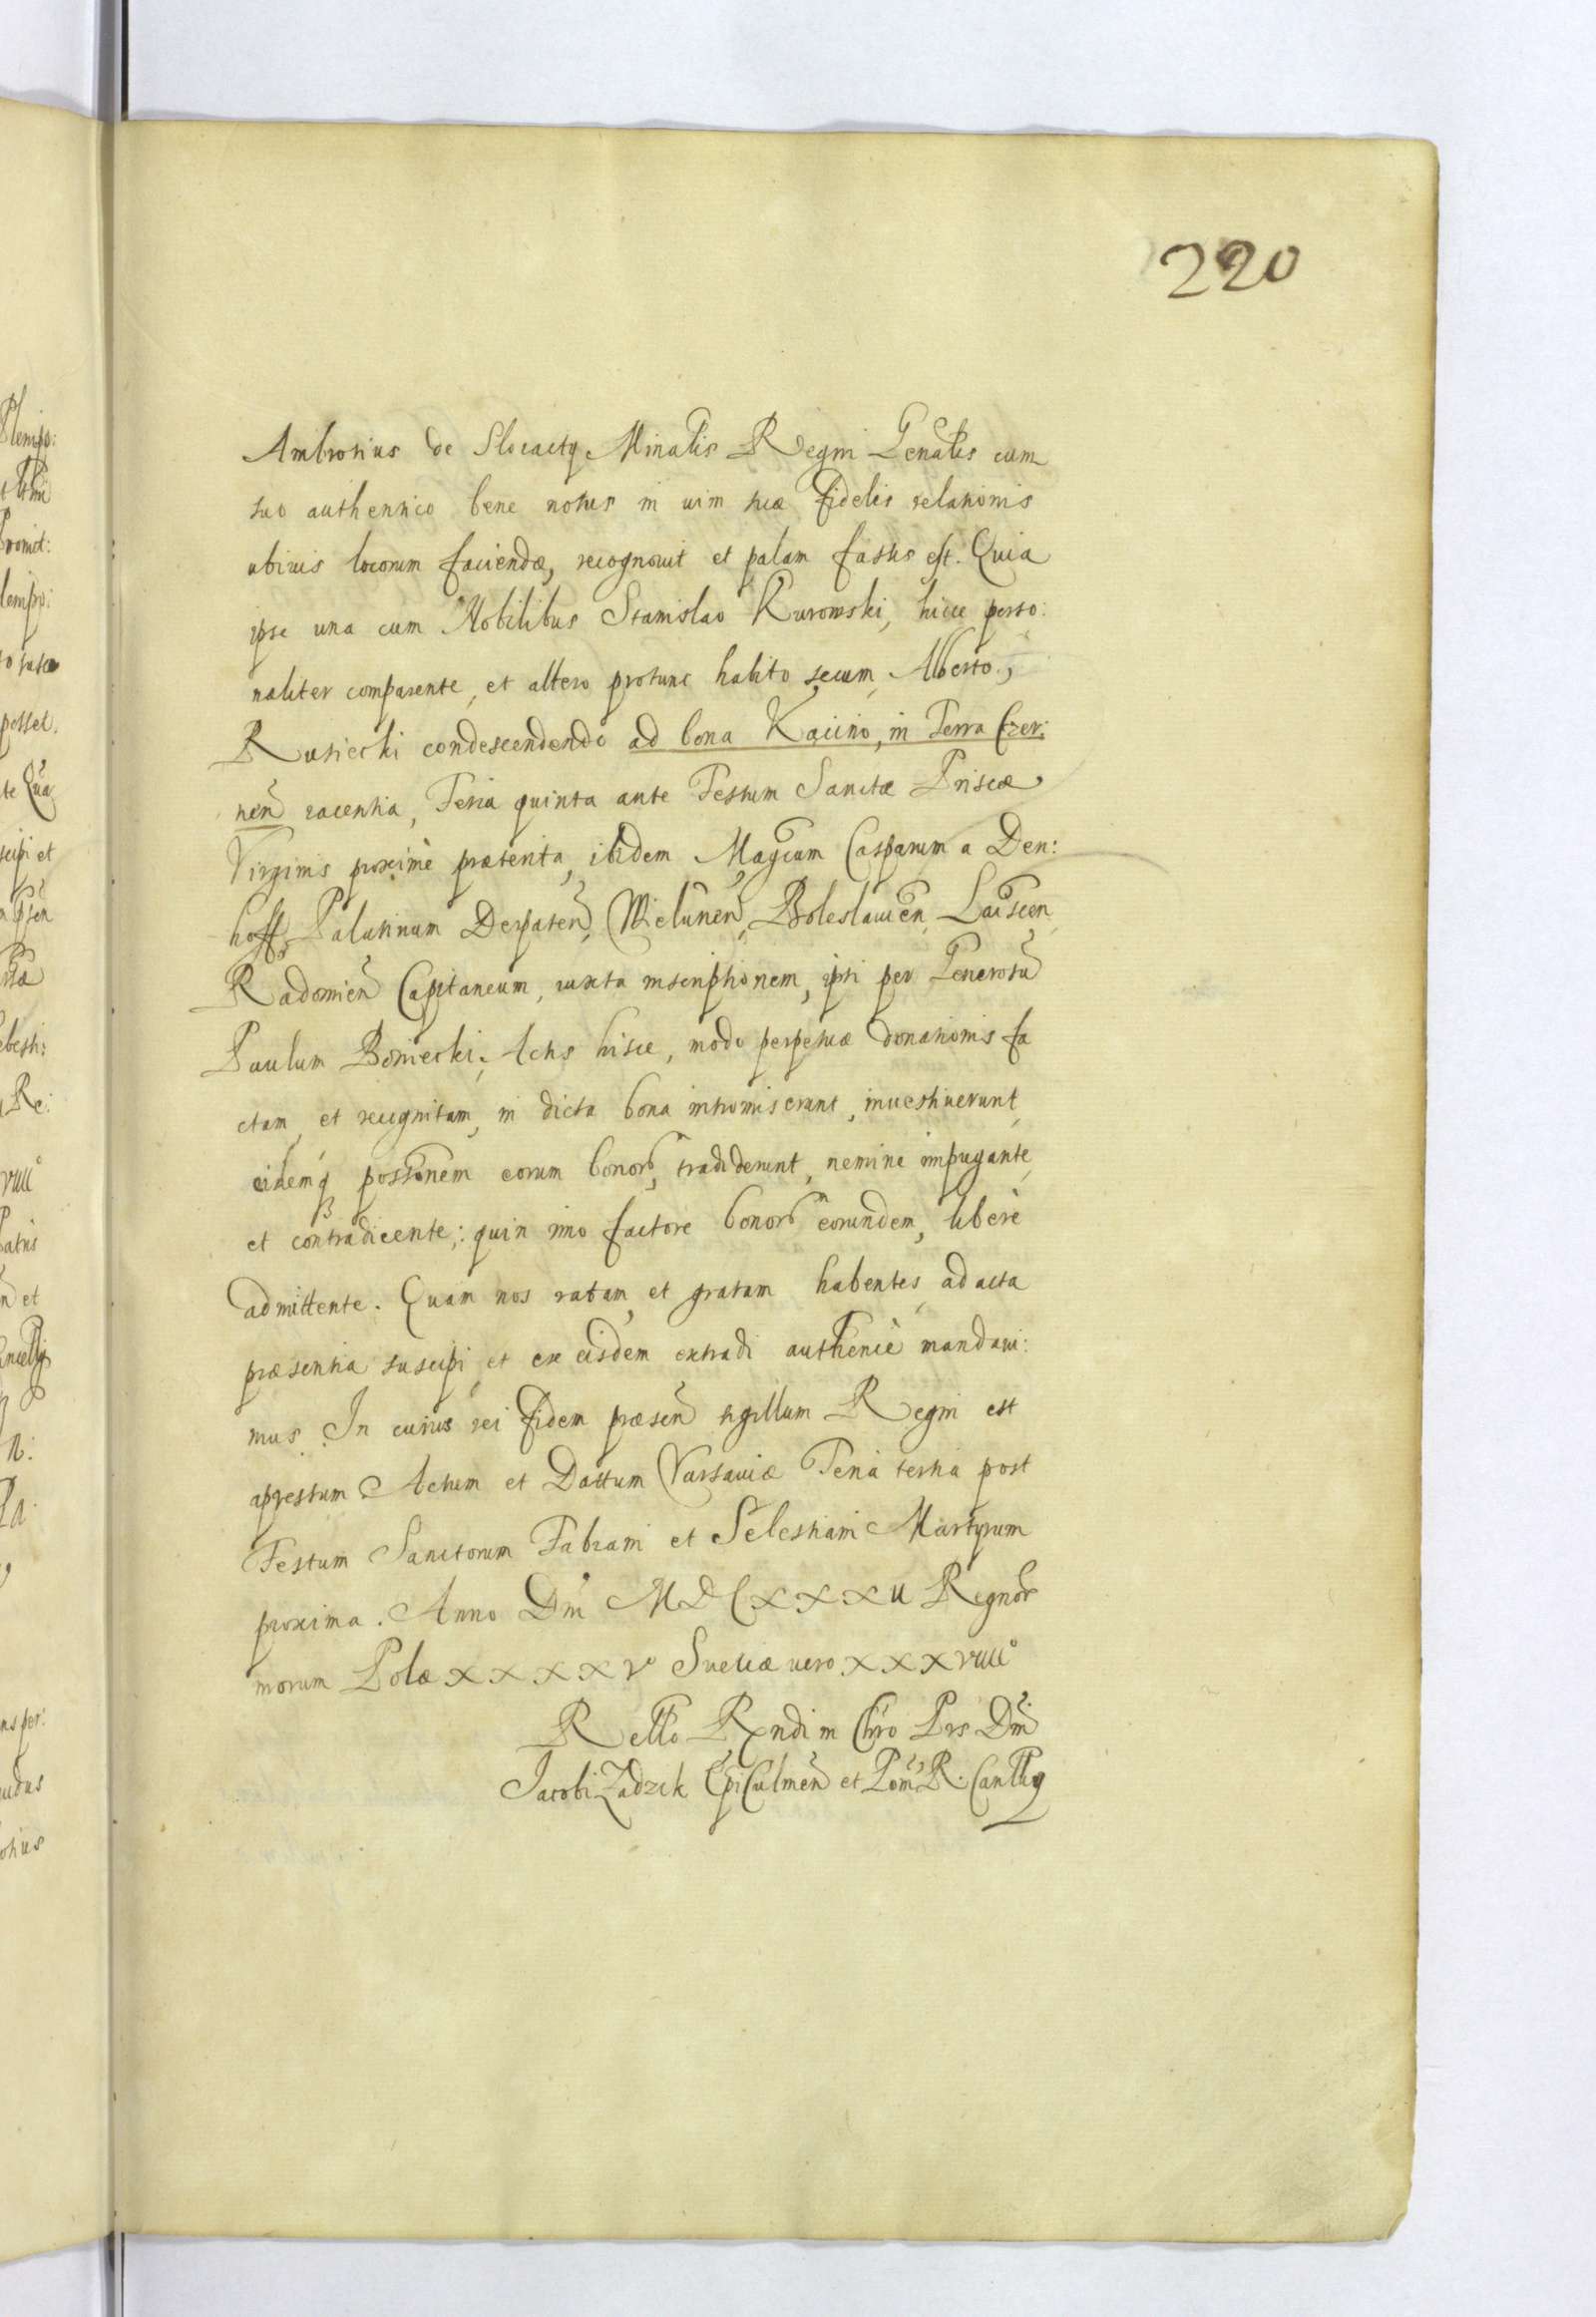 220
Ambrosius de Slocacty Minalis Regni Genalis cum
suo authentico bene notus in vim suæ fidelis relationis
ubivis locorum faciendæ, recognovit et palam fassus est. Quia
ipse una cum Nobilibus Stanislao Kurowski, hicce perso:
naliter comparente, et altero protunc habito secum, Alberto,
Rusiecki condescendendo ad bona Kącino, in Terra Czer:
nen̄ iacentia, Feria quinta ante Festum Sanctæ Priscæ
Virginis proximè præterita, ibidem Magcum Casparum a Den:
hoff, Palatinum Derpaten̄, Wielunen̄, Boleslauien,
Radomien̄ Capitaneum, iuxta inscriptionem, ipsi per Generosū
Paulum Boniecki, Actis hisce, modo perpetuæ donationis fa
ctam, et recognitam, in dicta bona intromiserunt, inuestiuerunt,
eidemq possionem eorum bonor, tradiderunt, nemine impugante,
et contradicente: quin imo factore bonor eorundem, liberè
admittente. Quam nos ratam, et gratam habentes, ad acta
præsentia suscipi, et ex eisdem extradi authenicè mandaui:
mus. In cuius rei fidem præsen̄ sigillum Regni est
apressum. Actum et Dattum Varsauiæ Feria tertia post
Festum Sanctorum Fabiani et Sebestiani Martyrum
proxima. Anno Dni MDCXXXII Regnor
nrorum Polæ XXXXV Sueciæ uero XXXVIIIº
Rello Rndi in Chro Pris Dni
Jacobi Zadzik Epi Culmen̄ et Pom̄ R. Canllrÿ
Plenipo:
romit:
lenipo:
possel.
te Qua
scipi et
Re:
VIIIº
n̄ et